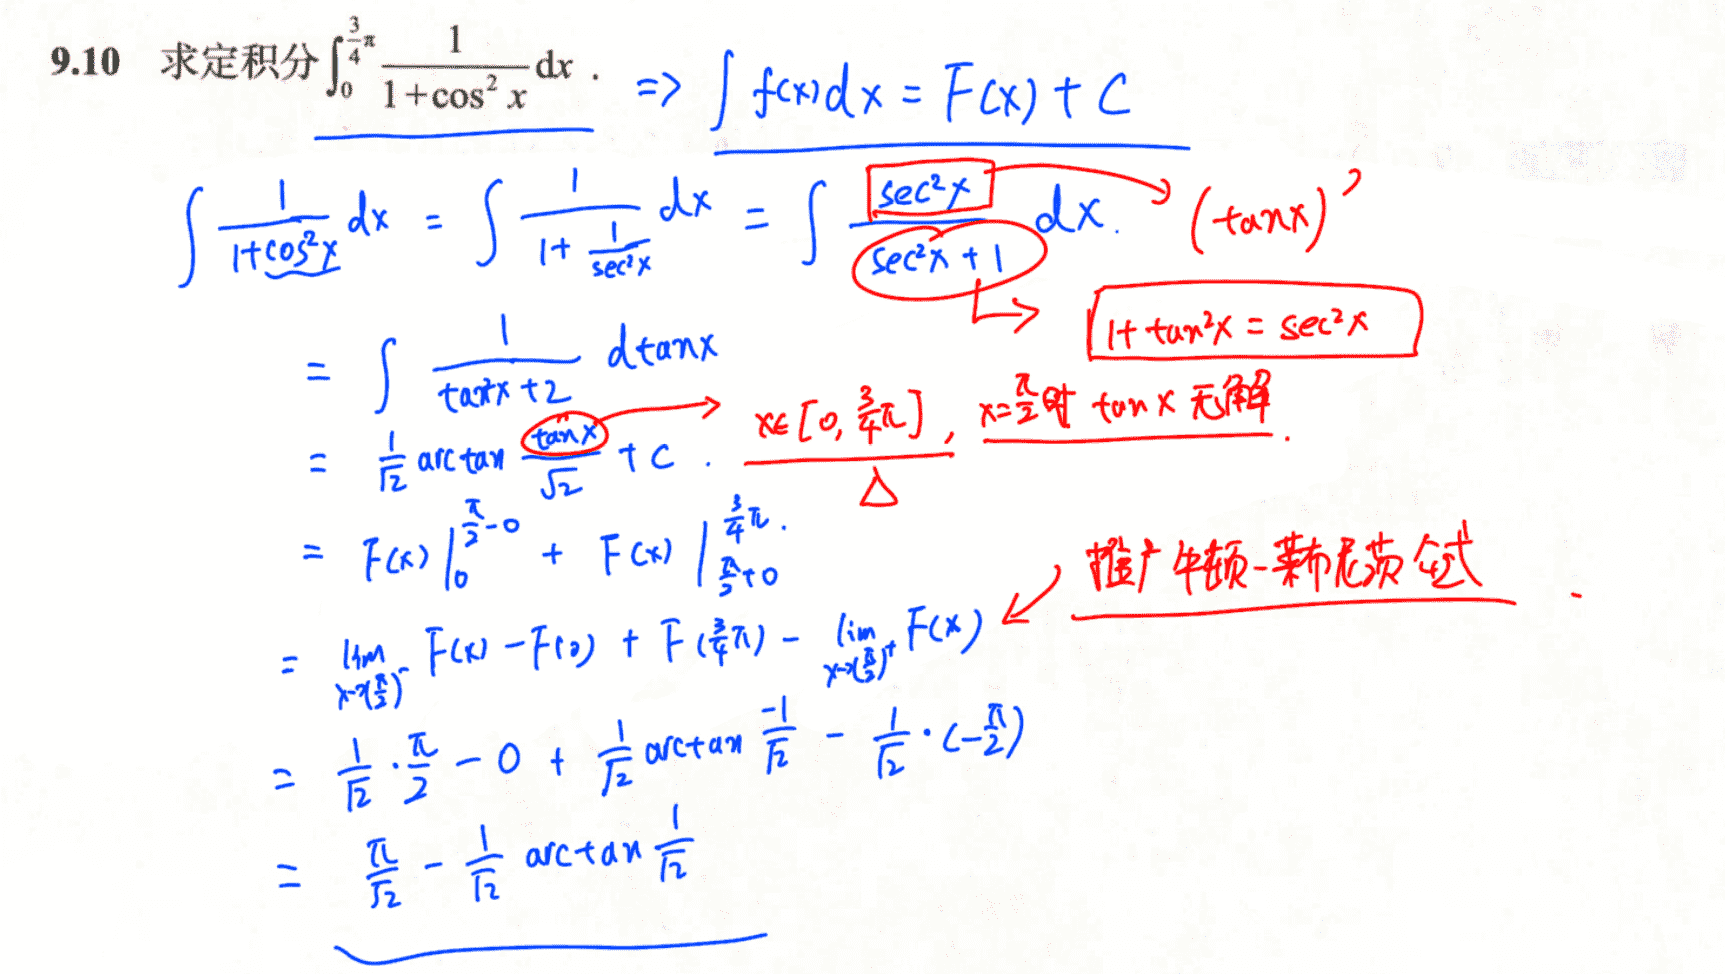 9.10 求定积分∫₀^{¾π} 1/(1+cos² x) dx . => ∫ f(x)dx = F(x) + C
∫ 1/(1+cos²x) dx = ∫ 1/(1+ 1/sec²x) dx = ∫ sec²x/(sec²x + 1) dx. (tanx)'
1+tan²x = sec²x
= ∫ 1/(tan²x +2) dtanx
= 1/√2 arctan tanx/√2 + C . x∈[0, ¾π], x=π/2时 tanx 无解.
= F(x)|₀^{π/2-0} + F(x)|_{π/2+0}^{¾π} .
推广牛顿-莱布尼茨公式
= lim_{x→(π/2)⁻} F(x) - F(0) + F(¾π) - lim_{x→(π/2)⁺} F(x)
= 1/√2 · π/2 - 0 + 1/√2 arctan -1/√2 - 1/√2 · (-π/2)
= π/√2 - 1/√2 arctan 1/√2